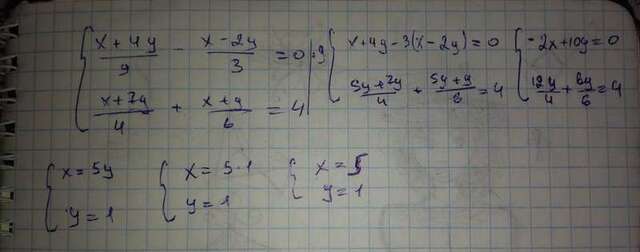 { (x + 4y)/9 − (x − 2y)/3 = 0 |·9
(x + 7y)/4 + (x + y)/6 = 4
{ x + 4y − 3(x − 2y) = 0
(5y + 7y)/4 + (5y + y)/6 = 4
{ −2x + 10y = 0
12y/4 + 6y/6 = 4
{ x = 5y
y = 1
{ x = 5·1
y = 1
{ x = 5
y = 1